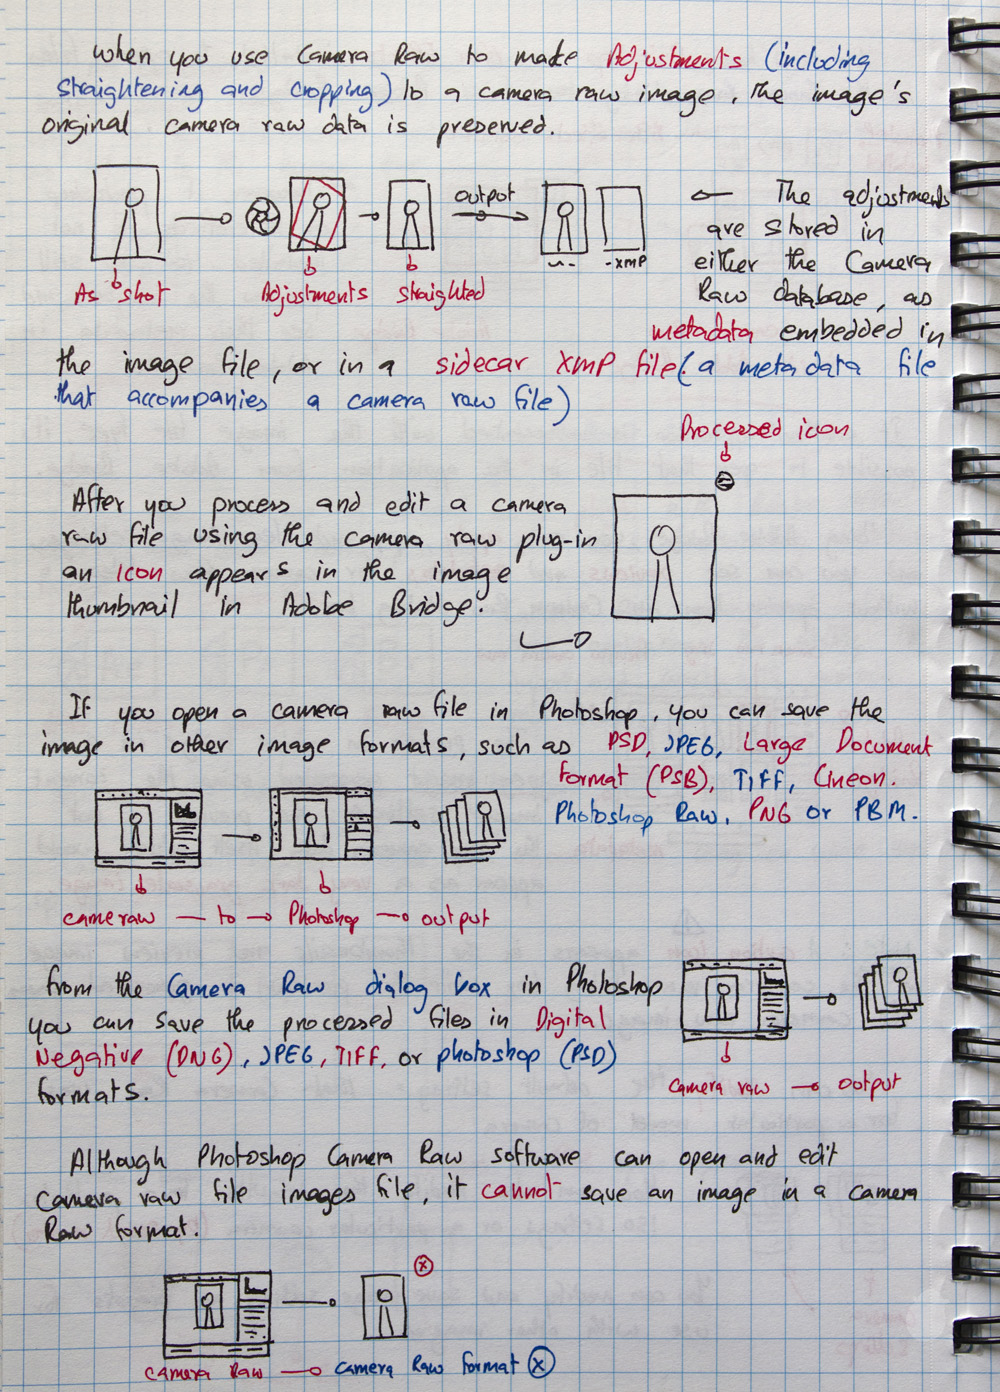 When you use Camera Raw to make Adjustments (including
straightening and cropping) to a camera raw image, the image's
original camera raw data is preserved.
output
-XMP
As shot
Adjustments
straighted
The adjustments
are stored in
either the Camera
Raw database, as
metadata embedded in
the image file, or in a sidecar XMP file (a metadata file
that accompanies a camera raw file)
Processed icon
After you process and edit a camera
raw file using the camera raw plug-in
an icon appears in the image
thumbnail in Adobe Bridge.
If you open a camera raw file in Photoshop, you can save the
image in other image formats, such as PSD, JPEG, Large Document
Format (PSB), TIFF, Cineon.
Photoshop Raw, PNG or PBM.
cameraw to Photoshop output
From the Camera Raw dialog box in Photoshop
you can save the processed files in Digital
Negative (DNG), JPEG, TIFF, or photoshop (PSD)
formats.
Camera raw output
Although Photoshop Camera Raw software can open and edit
camera raw file images file, it cannot save an image in a camera
Raw format.
camera Raw camera Raw format